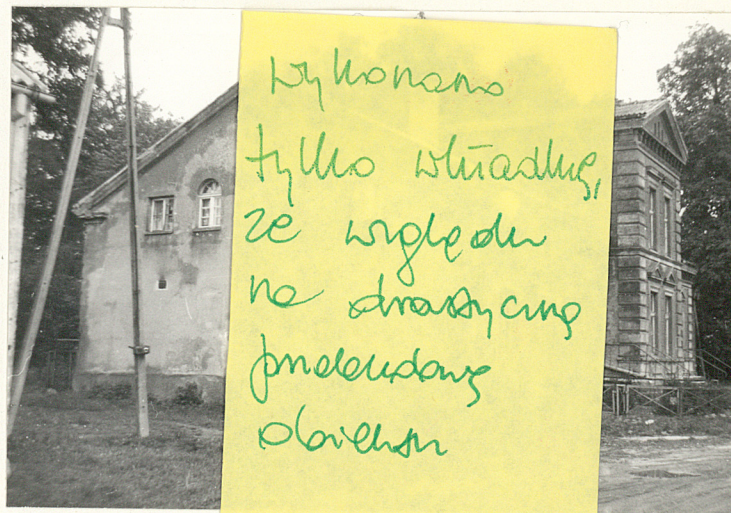 wykonano
tylko wkładkę,
ze względu
na drastyczną
przebudowę
obiektu